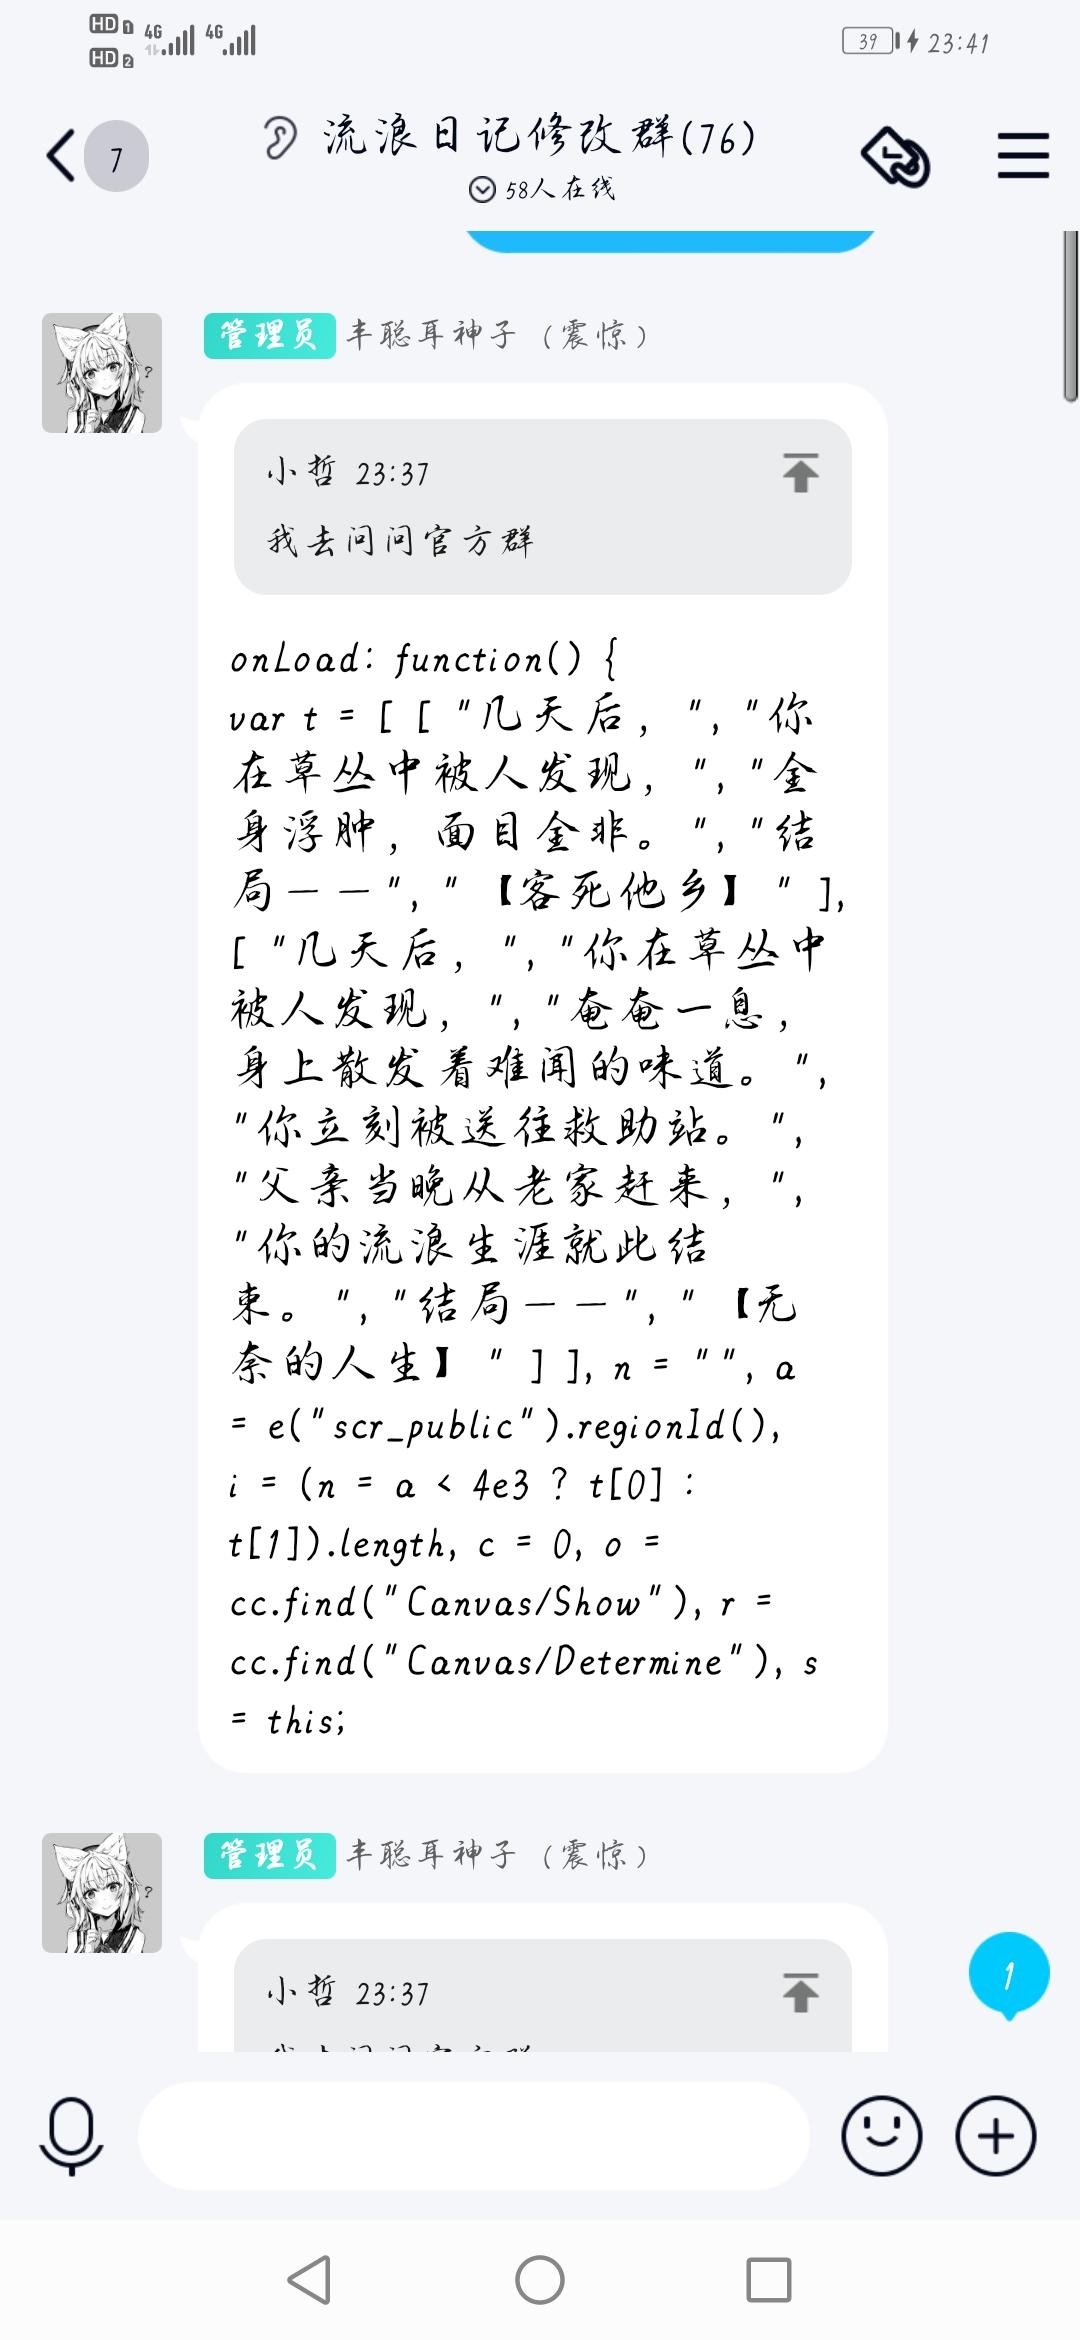 HD 1 4G 4G
HD 2
39 23:41
7
流浪日记修改群(76)
58人在线
管理员 丰聪耳神子（震惊）
小哲 23:37
我去问问官方群
onLoad: function() {
var t = [ [ "几天后，","你
在草丛中被人发现，","全
身浮肿，面目全非。","结
局——","【客死他乡】" ],
[ "几天后，","你在草丛中
被人发现，","奄奄一息，
身上散发着难闻的味道。",
"你立刻被送往救助站。",
"父亲当晚从老家赶来，",
"你的流浪生涯就此结
束。","结局——","【无
奈的人生】" ] ], n = "", a
= e("scr_public").regionId(),
i = (n = a < 4e3 ? t[0] :
t[1]).length, c = 0, o =
cc.find("Canvas/Show"), r =
cc.find("Canvas/Determine"), s
= this;
管理员 丰聪耳神子（震惊）
小哲 23:37
我去问问官方群
1